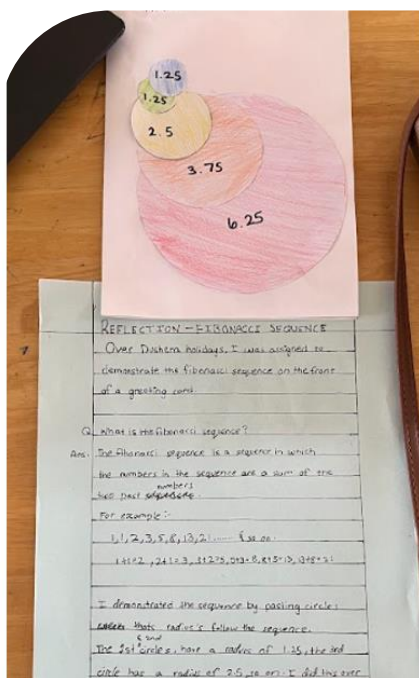 1.25
1.25
2.5
3.75
6.25
REFLECTION - FIBONACCI SEQUENCE
Over Dushera holidays, I was assigned to
demonstrate the fibonacci sequence on the front
of a greeting card
Q. What is the fibonacci sequence?
Ans. The fibonacci sequence is a sequence in which
the numbers in the sequence are a sum of the
two past numbers.
For example:-
1,1,2,3,5,8,13,21...... & so on.
1+1=2, 2+1=3, 3+2=5, 5+3=8, 8+5=13, 13+8=21
I demonstrated the sequence by pasting circles
thats radius's follow the sequence.
The 1st & 2nd circles, have a radius of 1.25, the 3rd
circle has a radius of 2.5, so on. I did this over